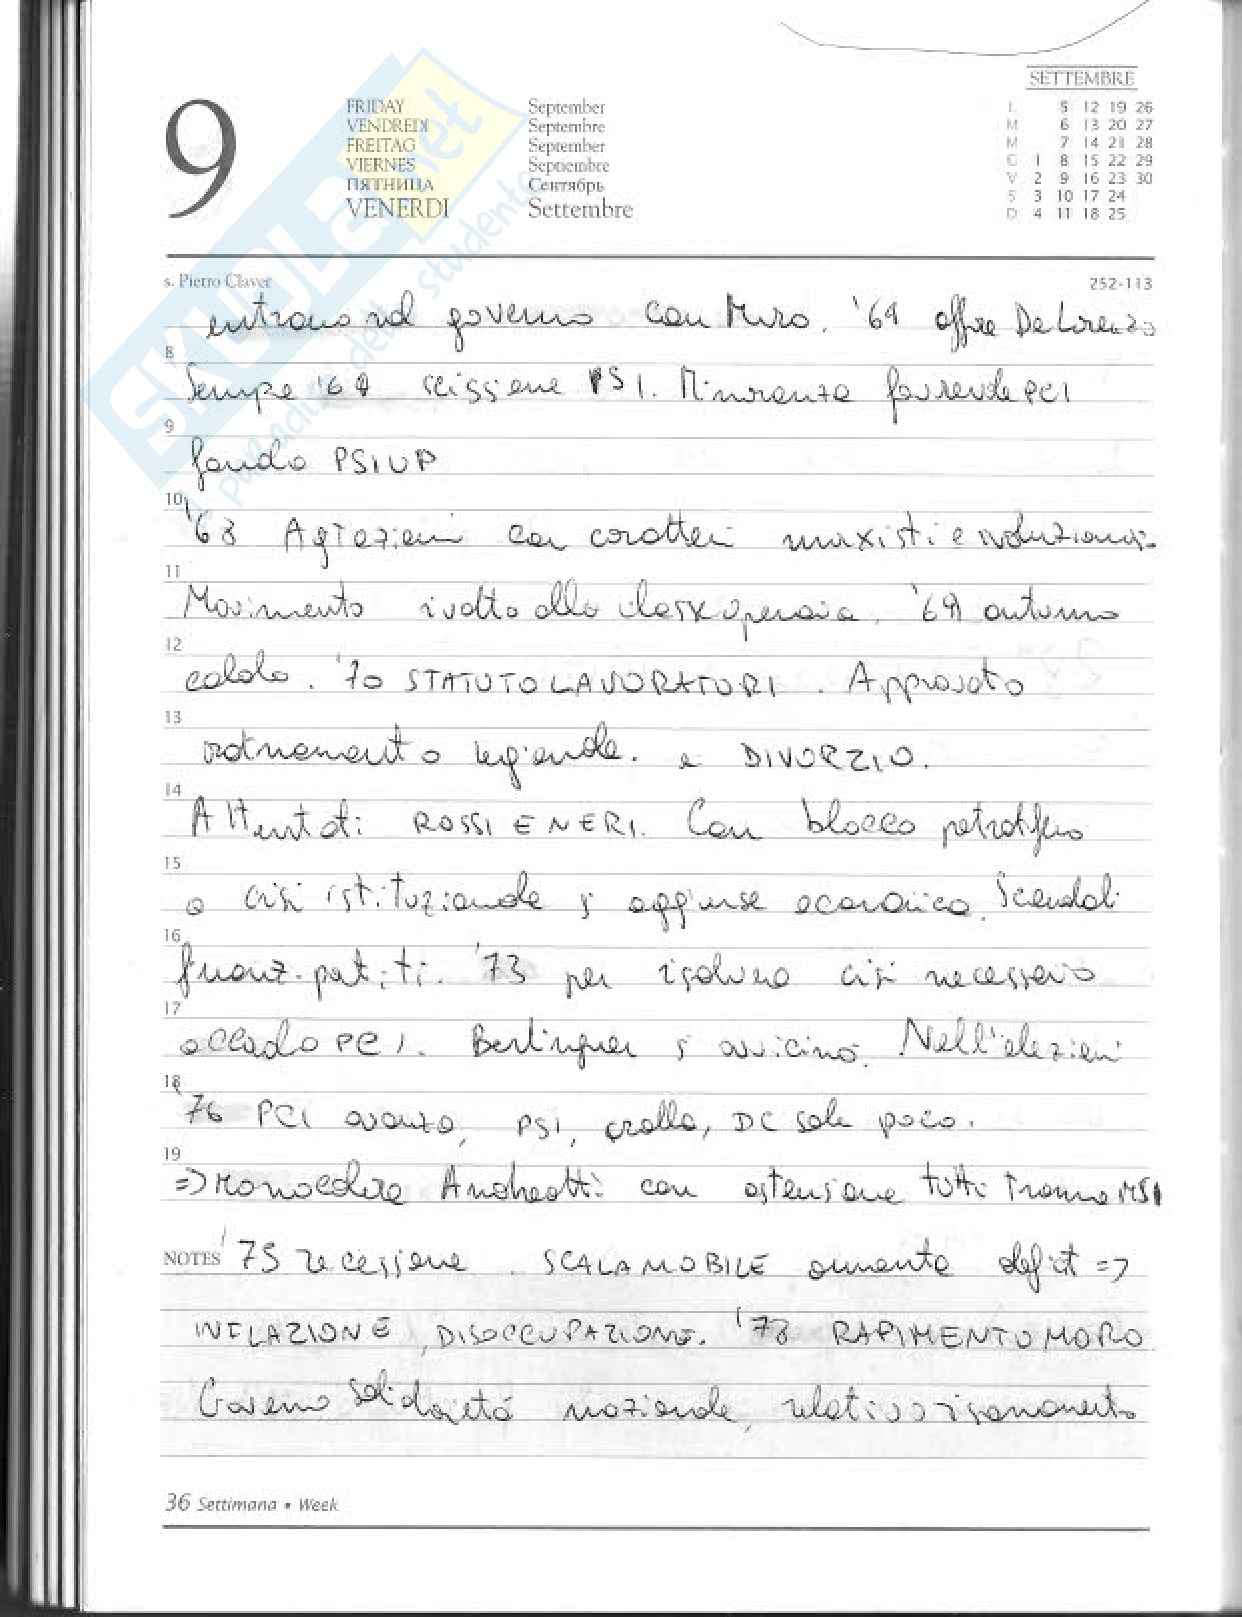 9
FRIDAY September
VENDREDI Septembre
FREITAG September
VIERNES Septiembre
ПЯТНИЦА Сентябрь
VENERDI Settembre
SETTEMBRE
L 5 12 19 26
M 6 13 20 27
M 7 14 21 28
G 1 8 15 22 29
V 2 9 16 23 30
S 3 10 17 24
D 4 11 18 25
SKUOLA.net
il paradiso dello studente
s. Pietro Claver 252-113
entrano nel governo con Moro. '64 affare De Lorenzo
8
Sempre '64 scissione PSI. Minoranza favorevole PCI
9
fonda PSIUP
10
'68 Agitazioni con caratteri marxisti e rivoluzionari
11
Movimento rivolto alla classe operaia. '69 autunno
12
caldo. '70 STATUTO LAVORATORI. Approvato
13
ordinamento regionale. e DIVORZIO.
14
Attentati ROSSI E NERI. Con blocco petrolifero
15
a crisi istituzionale s aggiunse economica. Scandali
16
finanz. partiti. '73 per risolvere crisi necessario
17
accordo PCI. Berlinguer s avvicinò. Nell'elezioni
18
'76 PCI avanza, PSI, crolla, DC sale poco.
19
=> Monocolore Andreotti con astensione tutti tranne MSI
NOTES '75 recessione. SCALA MOBILE aumenta deficit =>
INFLAZIONE, DISOCCUPAZIONE. '78 RAPIMENTO MORO
Governo solidarietà nazionale, relativo risanamento
36 Settimana • Week